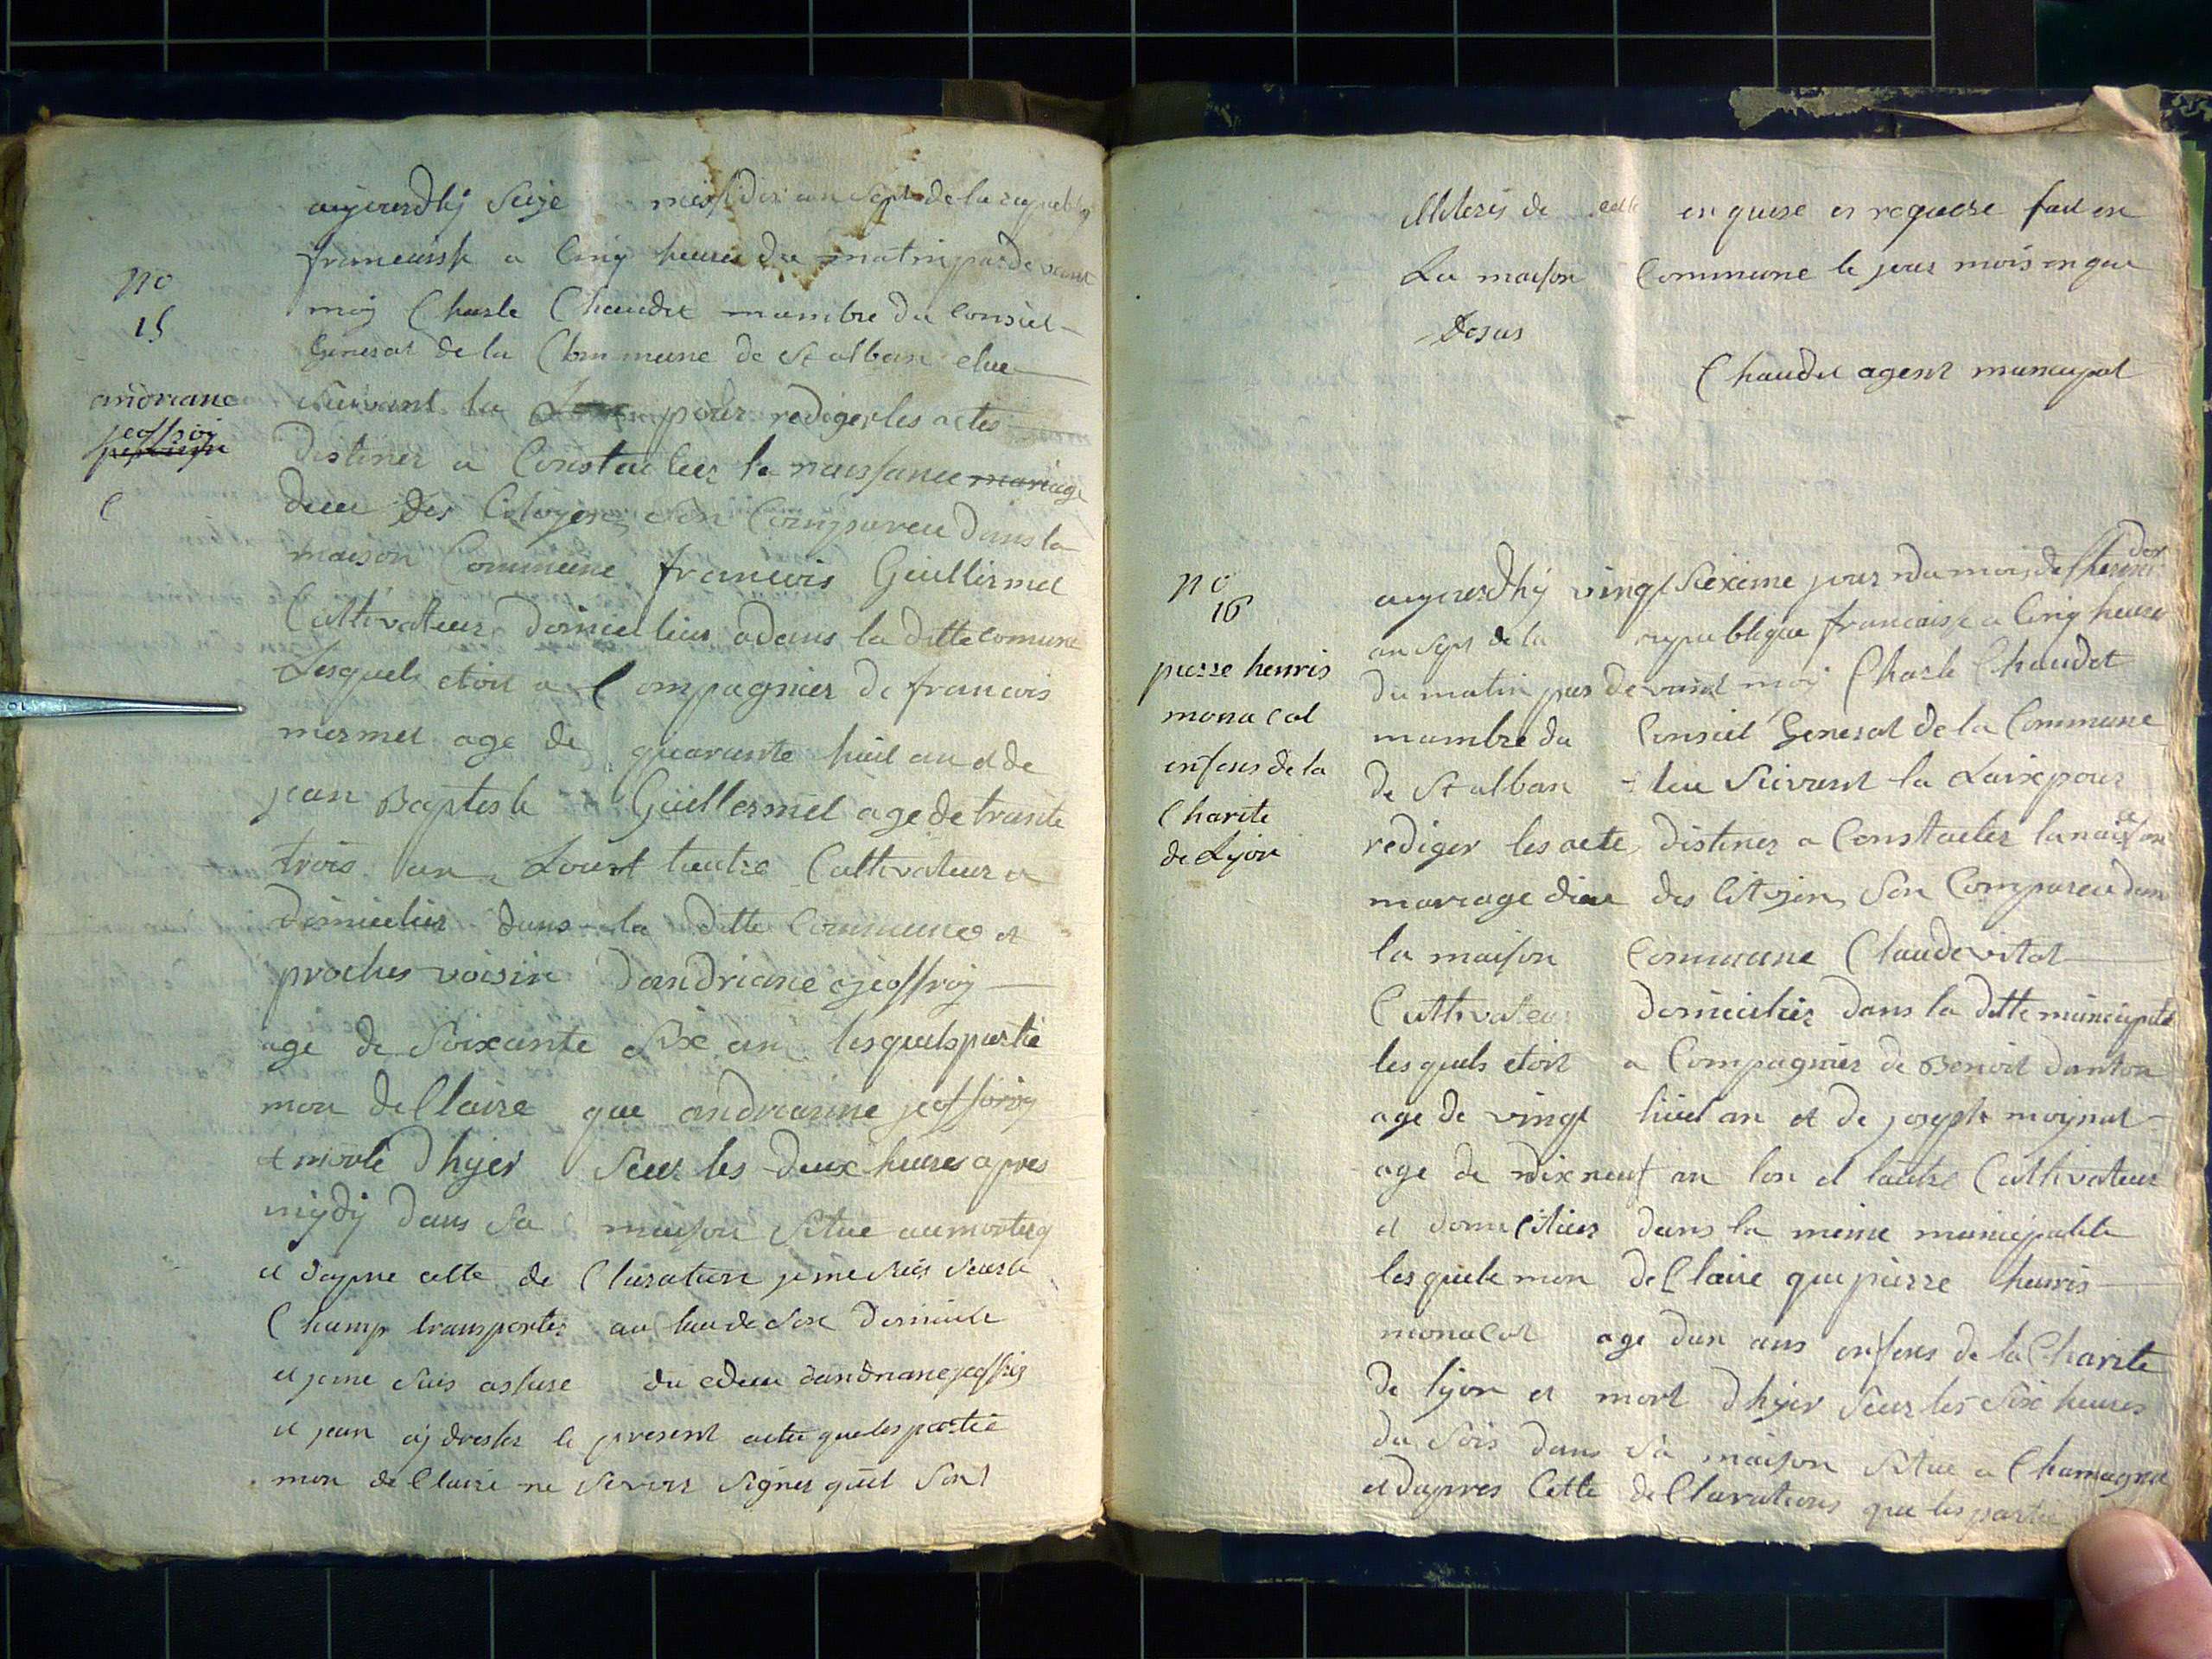 no
15
andriane
jeoffroij
aujourdhij Seize messidor an Sept de la republiq
francaisse a Cinq heures du matin par de vant
moij Charle Chaudet mambre du Consiel
General de la Commune de St alban elue
Suivant la Loix pour rediger les actes
distinez a Constactuez la naissance mariage
deces des Citoyens Son Compareu dans la
maison Commune francois Guillermet
Cultivateur domiculiez adans la ditte comune
Lesquels etoit a Compagniez de francois
mermet age de quarante huit an et de
jean Baptiste Guillermet age de trante
trois an Lount lautre Cultivateur et
domiculiez dans la ditte Commune et
proches voisin dandriane gjeoffroij
age de Soixante Six an lesquels partie
mon de Claire que andrianne jeoffroij
et morte dhyer Seur les deux heures apres
mijdij dans Sa maison Situe au
et dapre cette de Claration je me Suis Seurle
Champ transporter au lieu de Son domicile
et je me Suis assure du deces dandriane jeoffroij
et jean aij dresser le present acte que les partie
mon de Claire ne Savoir Signer quil Sont
Miterés de cette en quise er requerre fait en
La maison Commune le jour mois en que
desus
Chaudet agent municipal
no
16
pierre henris
monacal
enfens de la
Charite
de Lyon
dor
aujourdhij vingt Sixieme jour du mois de thermi
an Sept de la republique francaisse a Cinq heure
du matin par devand moij Charle Chaudet
mambre du Consiel General de la Commune
de St alban elue Suivant la Loix pour
rediger les acte distinez a Constactez la naissance
mariage diece des Citoyens Son Compareu dans
la maison Commune Claude vital
Cultivateur domiculiez dans la ditte municipalite
lesquels etoit a Compagniez de Benoit danton
age de vingt huit an et de joseph moynat
age de dix neuf an lon et lautre Cultivateur
et domiciliez dans la meme municipalite
lesquele mon de Claire que pierre henris
monacal age dun ans enfens de la Charite
de lyon et mort dhyer Seur les Six heures
du Soir dans Sa maison Situe a Chamagnat
et dapres Cette de Clarations que les partie